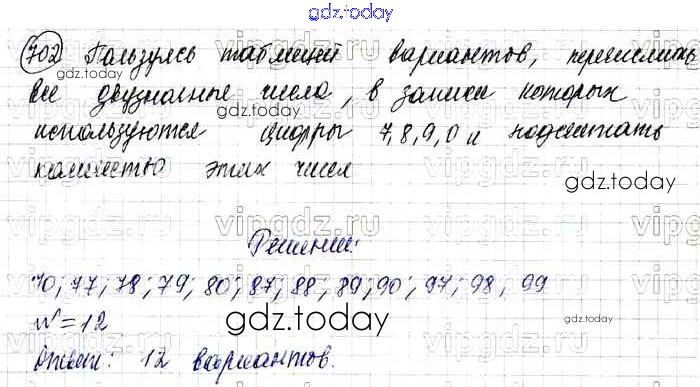 gdz.today
702 Пользуясь таблицей вариантов, перечислить
все двузначные числа, в записи которых
используются цифры 7,8,9,0 и подсчитать
количество этих чисел
Решение:
70; 77; 78; 79; 80; 87; 88; 89; 90; 97; 98; 99
N=12
Ответ: 12 вариантов.
gdz.today
gdz.today
gdz.today
gdz.today
vipgdz.ru